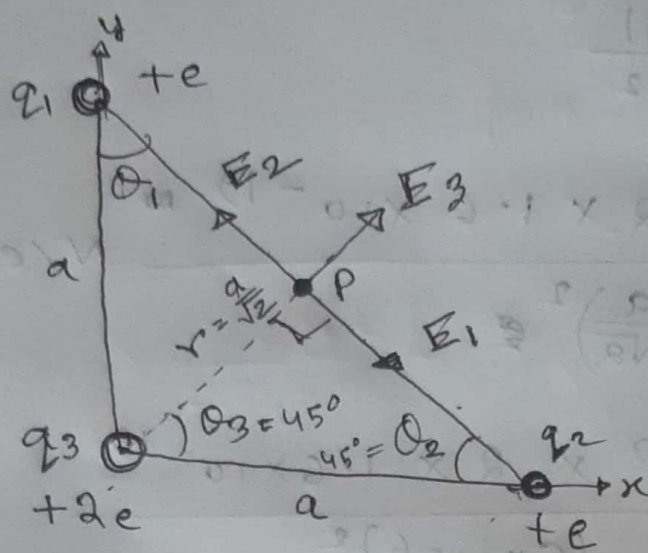 y
q1 +e
θ1
E2
E3
a
P
r = a/√2
E1
q3 θ3 = 45°
45° = θ2
q2
+2e
a
x
+e